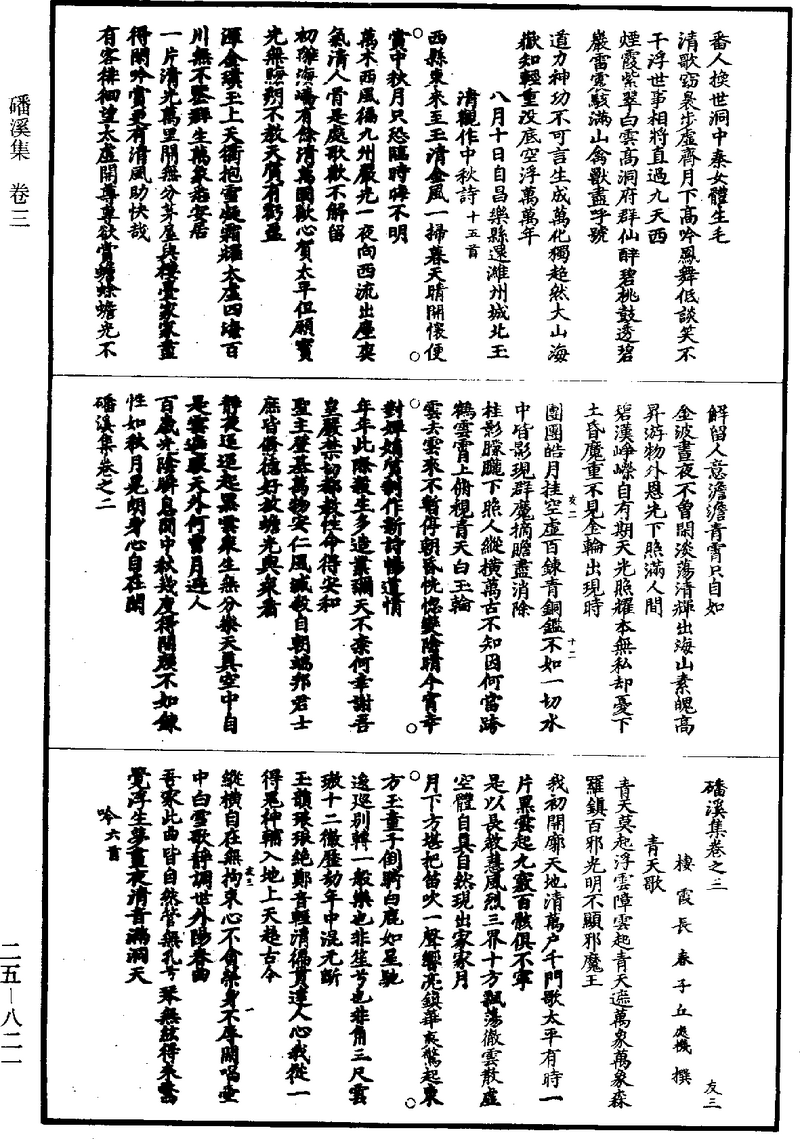 磻溪集 卷三
二五—八二一
番人換世洞中秦女體生毛
清歌窈裊步虛齊月下高吟鳳舞低談笑不
干浮世事相將直過九天西
煙霞紫翠白雲高洞府群仙醉碧桃鼓透碧
巖雷震駭滿山禽獸盡呼號
道力神功不可言生成萬化獨超然大山海
嶽知輕重沒底空浮萬萬年
八月十日自昌樂縣還濰州城北玉
清觀作中秋詩十五首
西縣東來至玉清金風一掃暮天晴開懷便
賞中秋月只恐臨時晦不明
萬木西風徧九州嚴光一夜向西流出塵爽
氣清人骨是處歌歡不解留
初離海嶠有餘清萬國歡心賀太平但願寶
光無翳朔不教天質有虧盈
渾金璞玉上天衢抱雪凝霜耀太虛四海百
川無不鑒群生萬象盡安居
一片清光萬里開無分茅屋與樓臺家家盡
得閑吟賞更有清風助快哉
有客徘徊望太虛開尊尊欲賞蟾蜍蟾光不
解留人意澹澹青霄只自如
金波晝夜不曾閑淡蕩清輝出海山素魄高
昇游物外恩光下照滿人間
碧漢崢嶸自有期天光照耀本無私却憂下
土昏魔重不見金輪出現時
友二
十二
團團皓月挂空虛百鍊青銅鑑不如一切水
中皆影現群魔摘膽盡消除
桂影朦朧下照人縱橫萬古不知因何當跨
鶴雲霄上俯視青天白玉輪
雲去雲來不暫停朝昏恍惚變陰晴今宵幸
對嬋娟質制作新詩暢道情
年年此際殺生多造業彌天不柰何幸謝吾
皇嚴禁切都教性命得安和
聖主登基萬物安仁風滅殺自朝端邦君士
庶皆修德好放蟾光與衆看
靜夜迢迢起黑雲衆生無分樂天真空中自
是雲遮礙天外何嘗月避人
百歲光陰瞬息間中秋幾度得開顏不如鍊
性如秋月晃朗身心自在閑
磻溪集卷之二
磻溪集卷之三
友三
棲霞長春子丘處機撰
青天歌
青天莫起浮雲障雲起青天遮萬象萬象森
羅鎮百邪光明不顯邪魔王
我初開廓天地清萬户千門歌太平有時一
片黑雲起九竅百骸俱不寧
是以長教慧風烈三界十方飄蕩徹雲散虛
空體自真自然現出家家月
月下方堪把笛吹一聲響亮鎮華夷驚起東
方玉童子倒騎白鹿如星馳
逡巡别轉一般樂也非笙兮也非角三尺雲
璈十二徽歷劫年中混元斲
玉韻琅琅絶鄭音輕清徧貫達人心我從一
得鬼神輔入地上天超古今
友三
一
縱橫自在無拘束心不貪榮身不辱閑唱壺
中白雪歌靜調世外陽春曲
吾家此曲皆自然管無孔兮琴無絃得來驚
覺浮生夢晝夜清音滿洞天
吟六首